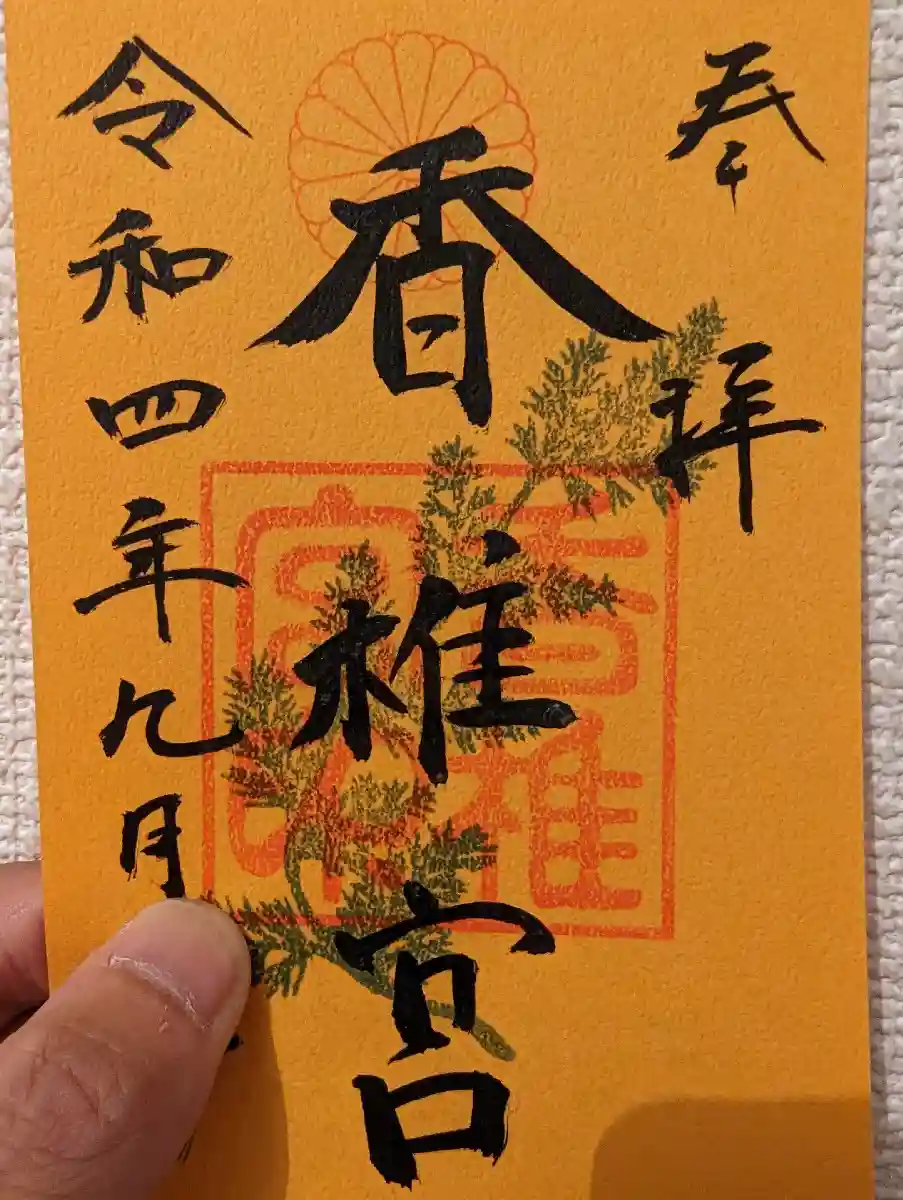 奉拝
香椎宮
香椎宮印
令和四年九月